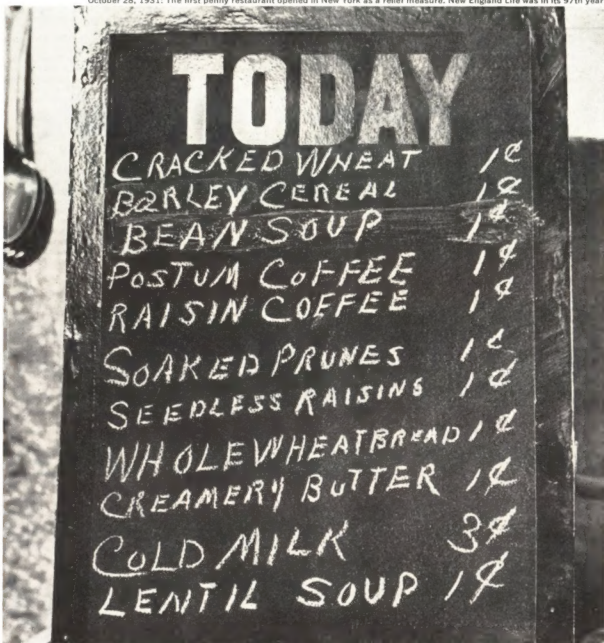 October 28, 1931. The first penny restaurant opened in New York as a relief measure. New England Life was in its 97th year
TODAY
CRACKED WHEAT 1¢
BARLEY CEREAL 1¢
BEAN SOUP 1¢
POSTUM COFFEE 1¢
RAISIN COFFEE 1¢
SOAKED PRUNES 1¢
SEEDLESS RAISINS 1¢
WHOLE WHEAT BREAD 1¢
CREAMERY BUTTER 1¢
COLD MILK 3¢
LENTIL SOUP 1¢